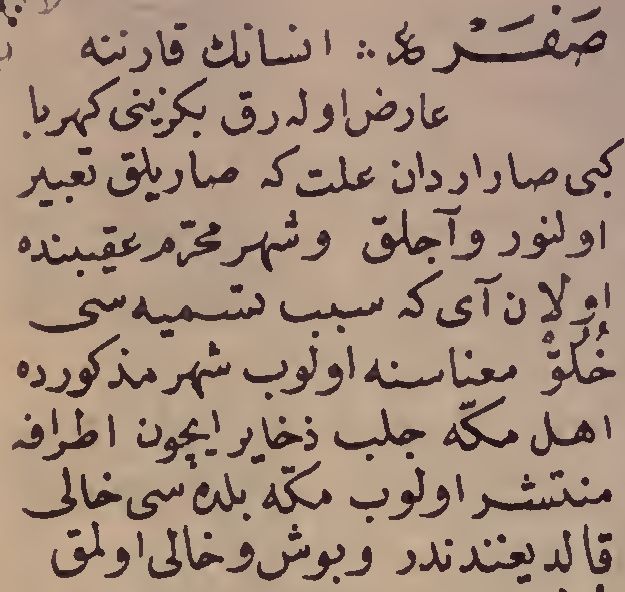 صَفَرْ ع ∴ انسانك قارننه
عارض اوله رق بكزينى كهربا
كبى صارارдан علت كه صاريلق تعبير
اولنور وآجلق وشهر محرّم عقيبنده
اولان آى كه سبب تسميه سى
خُلُوّ معناسنه اولوب شهر مذكورده
اهل مكّه جلب ذخاير ايچون اطرافه
منتشر اولوب مكّه بلده سى خالى
قالديغندندر وبوش وخالى اولمق